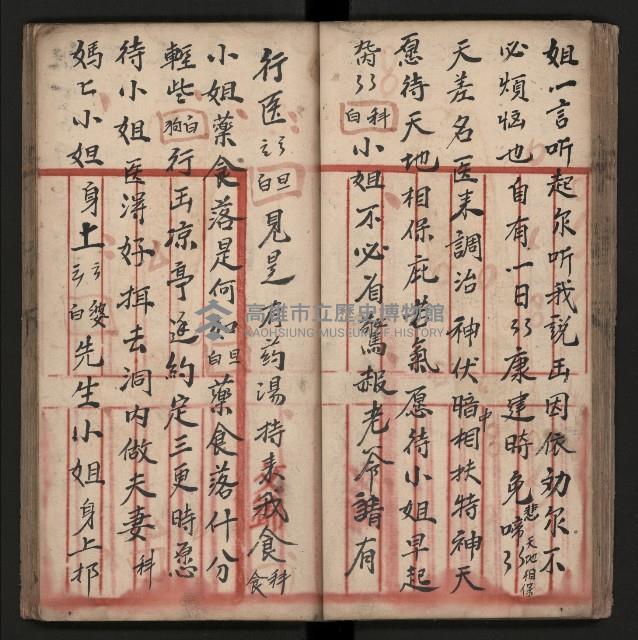 姐一言听起尔听我説出因依劝尔不
必煩恼也自有一日3康建時免啼3
悲天地相保
天差名医来調治神伏暗中相扶持神天
愿待天地相保庇老氣愿待小姐早起
科白小姐不必省驚報老爷諸有
行医云云旦白見是有药湯持来我食科食
小姐藥食落是何如旦白藥食落什分
輕些白狗行出凉亭逆約定三更時愿
待小姐医得好挕去洞内做夫妻科
媽匕小姐身上云云婆白先生小姐身上邪
高雄市立歷史博物館
KAOHSIUNG MUSEUM OF HISTORY